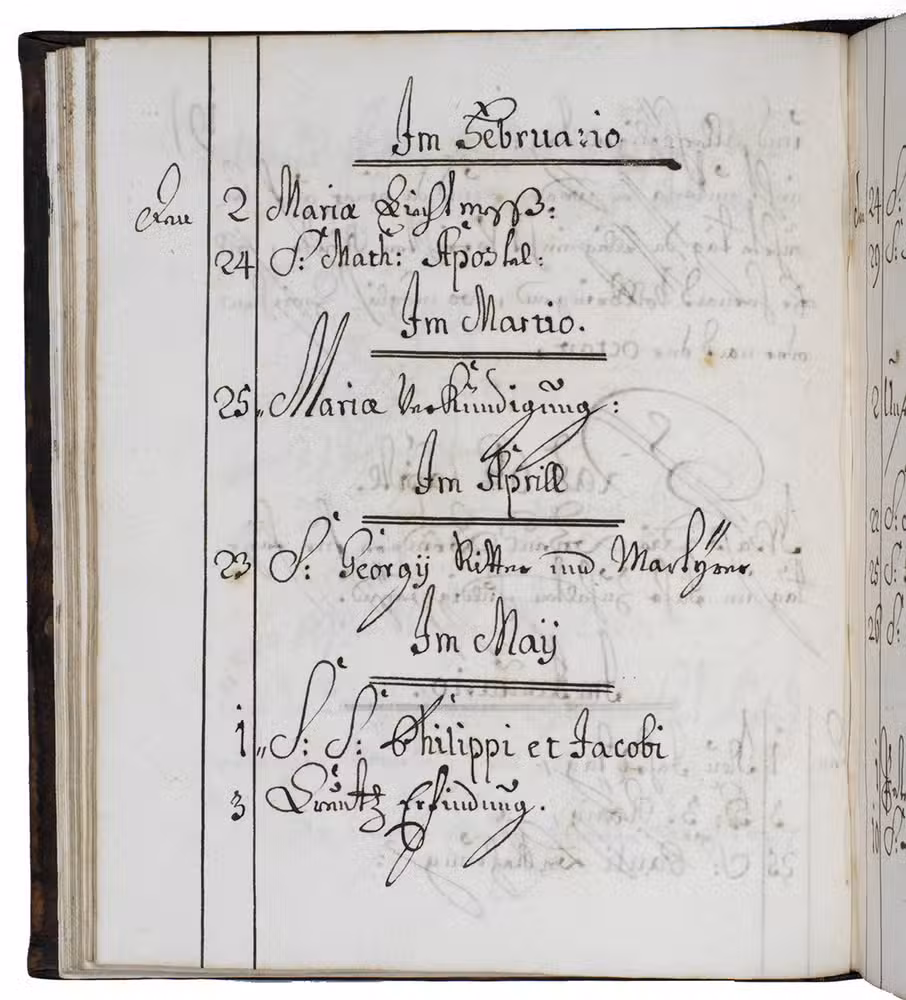 Im Februario
Den 2 Mariæ Liechtmesß:
24 S: Math: Apostel:
Im Martio.
25. Mariæ Verkündigung:
Im Aprill
23 S: Georgÿ Ritter und Martÿrer
Im Maÿ
1. S: S: Philippi et Jacobi
3 Creütz Erfindung.
24 S:
29 S:
2
22 S:
25 S:
26 S: